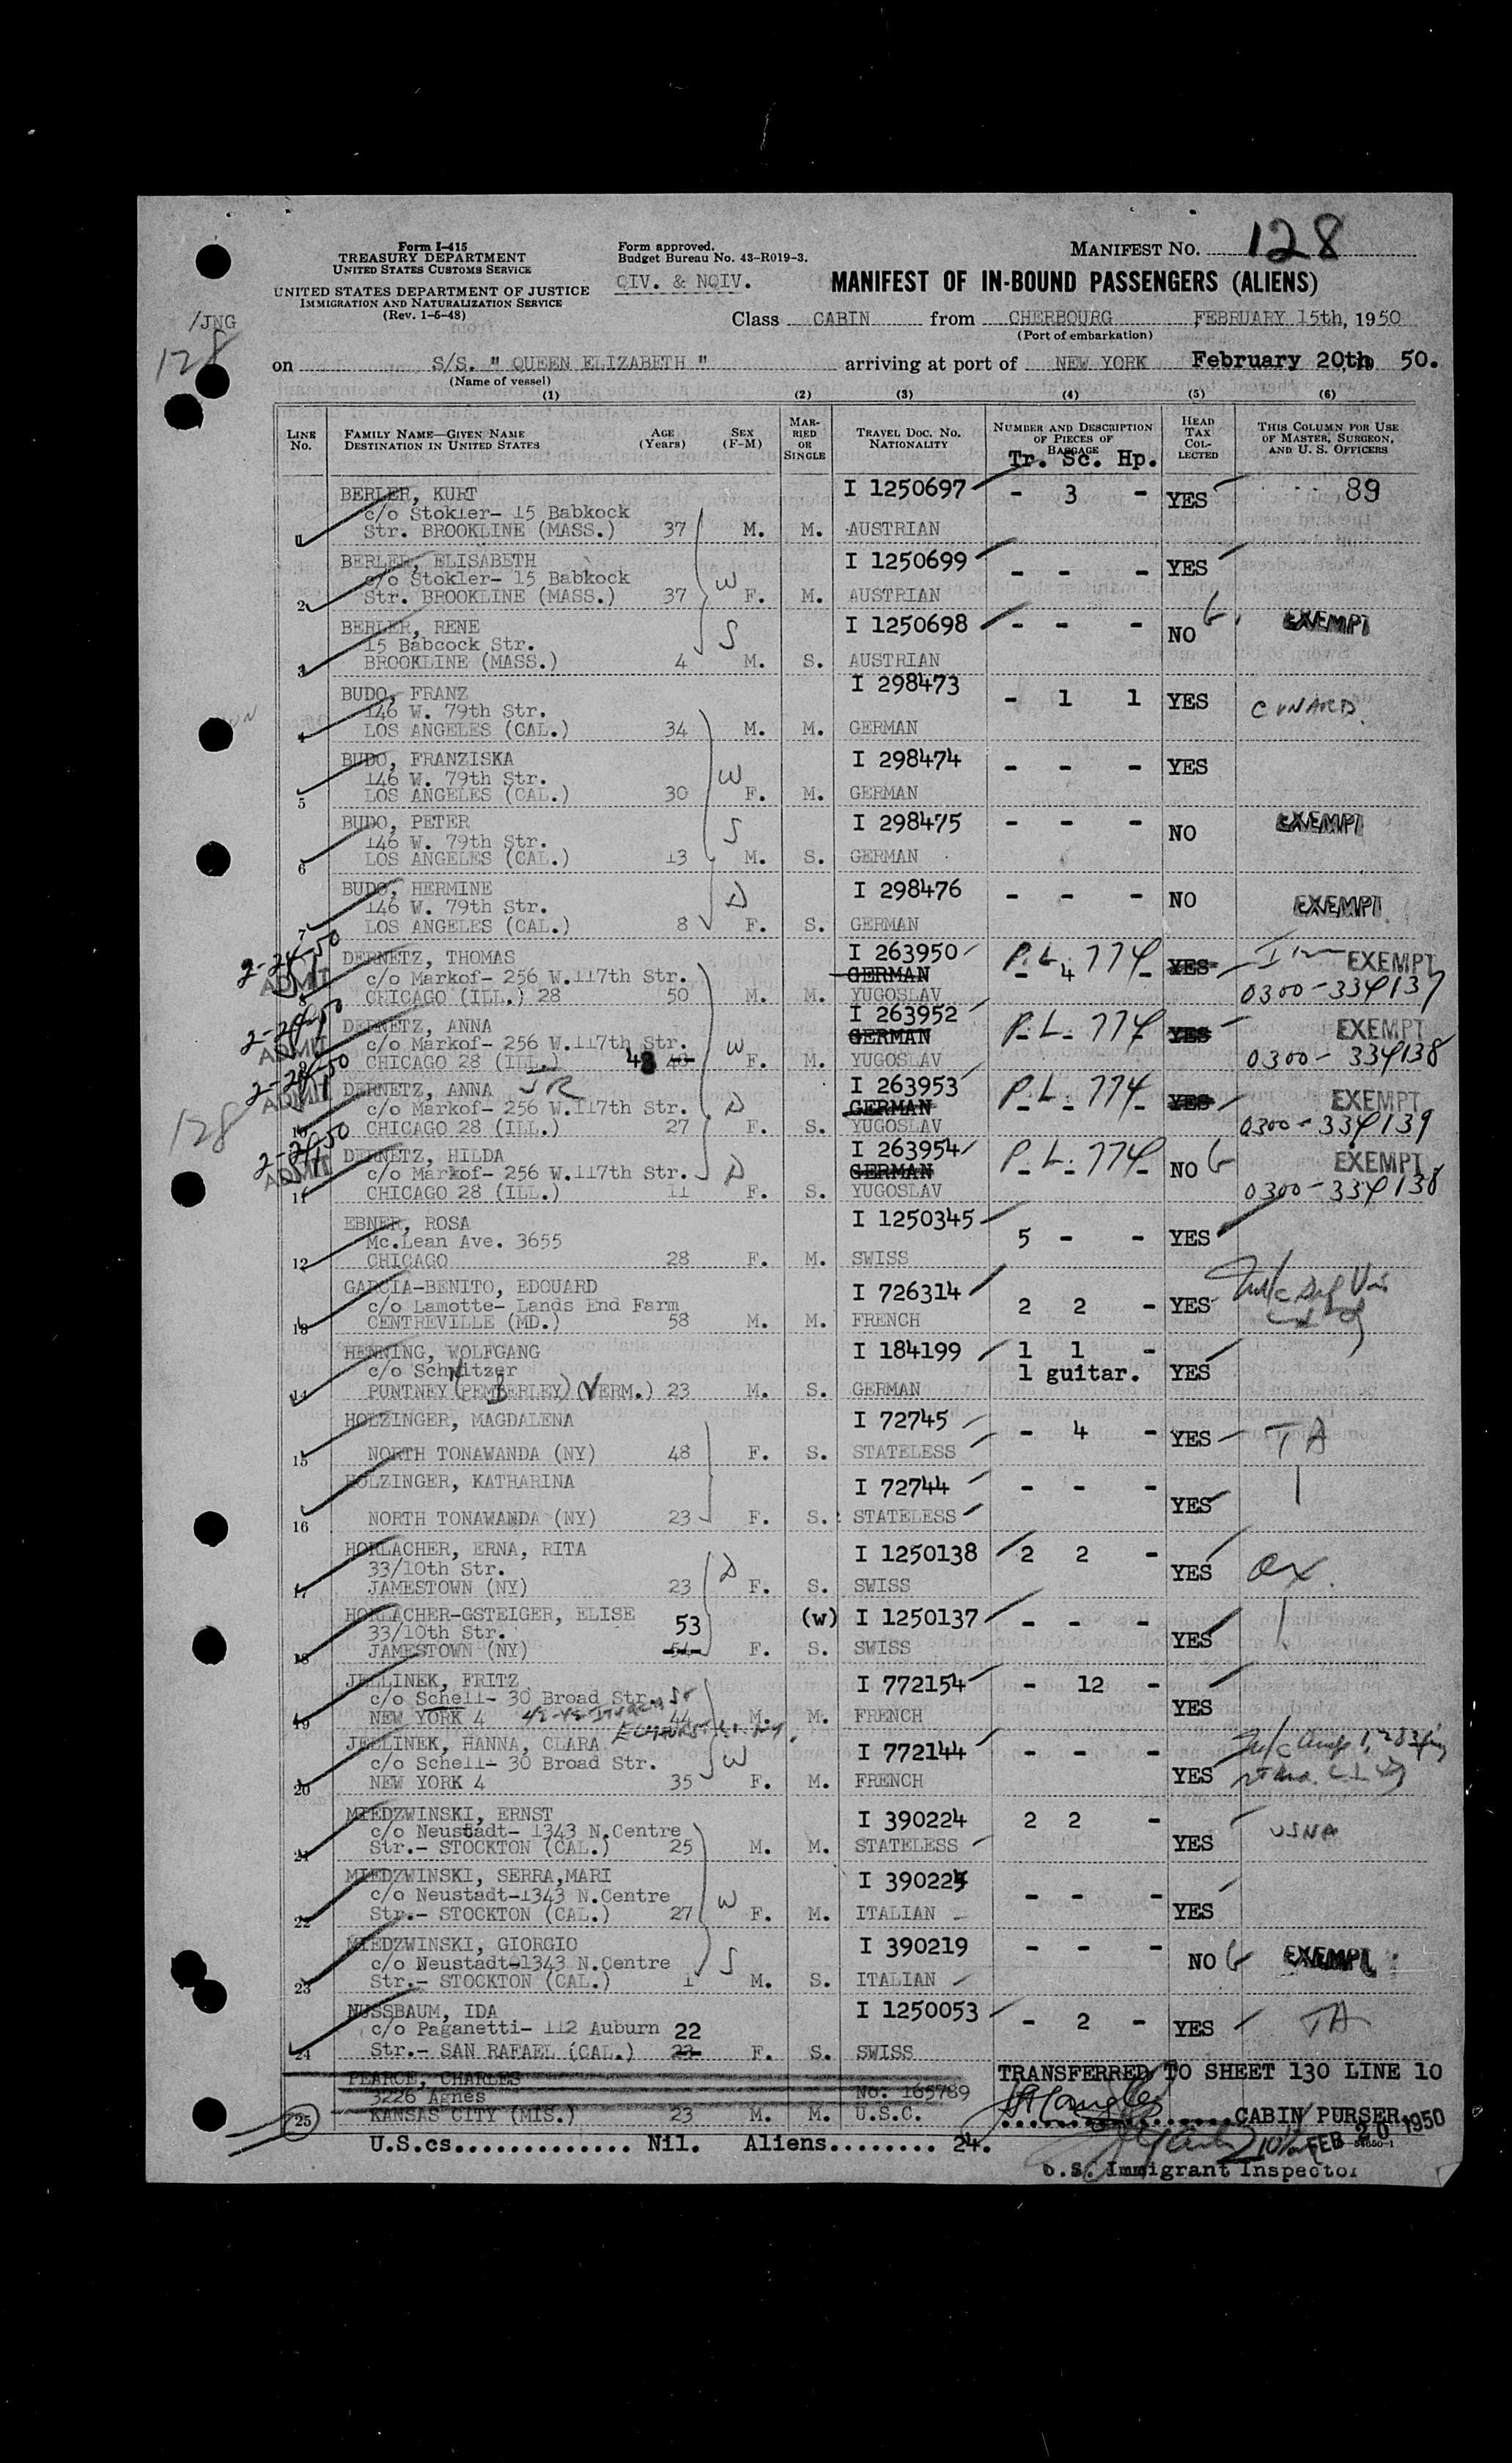 Form I-415
TREASURY DEPARTMENT
UNITED STATES CUSTOMS SERVICE
UNITED STATES DEPARTMENT OF JUSTICE
IMMIGRATION AND NATURALIZATION SERVICE
(Rev. 1-6-48)
Form approved.
Budget Bureau No. 43-R019-3.
QIV. & NQIV.
MANIFEST NO. 128
MANIFEST OF IN-BOUND PASSENGERS (ALIENS)
/JNG
128
Class CABIN from CHERBOURG FEBRUARY 15th, 1950
(Port of embarkation)
on S/S. " QUEEN ELIZABETH " arriving at port of NEW YORK February 20th, 50.
(Name of vessel)
(1) (2) (3) (4) (5) (6)
LINE No. FAMILY NAME—GIVEN NAME DESTINATION IN UNITED STATES AGE (Years) SEX (F-M) MARRIED OR SINGLE TRAVEL DOC. NO. NATIONALITY NUMBER AND DESCRIPTION OF PIECES OF BAGGAGE HEAD TAX COLLECTED THIS COLUMN FOR USE OF MASTER, SURGEON, AND U. S. OFFICERS
Tr. Sc. Hp.
BERLER, KURT I 1250697 - 3 - YES 89
c/o Stokler- 15 Babkock
1 Str. BROOKLINE (MASS.) 37 M. M. AUSTRIAN
BERLER, ELISABETH I 1250699 - - - YES
c/o Stokler- 15 Babkock W
2 Str. BROOKLINE (MASS.) 37 F. M. AUSTRIAN
BERLER, RENE S I 1250698 - - - NO EXEMPT
15 Babcock Str.
3 BROOKLINE (MASS.) 4 M. S. AUSTRIAN
BUDO, FRANZ I 298473 - 1 1 YES CUNARD
146 W. 79th Str.
4 LOS ANGELES (CAL.) 34 M. M. GERMAN
BUDO, FRANZISKA I 298474 - - - YES
146 W. 79th Str. W
5 LOS ANGELES (CAL.) 30 F. M. GERMAN
BUDO, PETER S I 298475 - - - NO EXEMPT
146 W. 79th Str.
6 LOS ANGELES (CAL.) 13 M. S. GERMAN
BUDO, HERMINE D I 298476 - - - NO EXEMPT
146 W. 79th Str.
7 LOS ANGELES (CAL.) 8 F. S. GERMAN
2-24-50 DERNETZ, THOMAS I 263950 P.L. 774 4 YES EXEMPT
ADMIT c/o Markof- 256 W.117th Str. GERMAN
8 CHICAGO (ILL.) 28 50 M. M. YUGOSLAV 0300-334137
2-24-50 DERNETZ, ANNA I 263952 P.L. 774 YES EXEMPT
ADMIT c/o Markof- 256 W.117th Str. W GERMAN
9 CHICAGO 28 (ILL.) 48 F. M. YUGOSLAV 0300-334138
2-24-50 DERNETZ, ANNA JR I 263953 P.L. 774 YES EXEMPT
ADMIT c/o Markof- 256 W.117th Str. D GERMAN
128
10 CHICAGO 28 (ILL.) 27 F. S. YUGOSLAV 0300-334139
2-24-50 DERNETZ, HILDA I 263954 P.L. 774 NO EXEMPT
ADMIT c/o Markof- 256 W.117th Str. D GERMAN
11 CHICAGO 28 (ILL.) 11 F. S. YUGOSLAV 0300-334138
EBNER, ROSA I 1250345 5 - - YES
Mc.Lean Ave. 3655
12 CHICAGO 28 F. M. SWISS
GARCIA-BENITO, EDOUARD I 726314 2 2 - YES
c/o Lamotte- Lands End Farm
13 CENTREVILLE (MD.) 58 M. M. FRENCH
HENNING, WOLFGANG I 184199 1 1 - YES
c/o Schnitzer 1 guitar.
14 PUNTNEY (PEMBERLEY) (VERM.) 23 M. S. GERMAN
HOLZINGER, MAGDALENA I 72745 - 4 - YES TA
15 NORTH TONAWANDA (NY) 48 F. S. STATELESS
HOLZINGER, KATHARINA I 72744 - - - YES
16 NORTH TONAWANDA (NY) 23 F. S. STATELESS
HORLACHER, ERNA, RITA D I 1250138 2 2 - YES
33/10th Str.
17 JAMESTOWN (NY) 23 F. S. SWISS
HORLACHER-GSTEIGER, ELISE 53 (w) I 1250137 - - - YES
33/10th Str.
18 JAMESTOWN (NY) 54 F. S. SWISS
JELLINEK, FRITZ I 772154 - 12 - YES
c/o Schell- 30 Broad Str.
19 NEW YORK 4 44 M. M. FRENCH
JELLINEK, HANNA, CLARA I 772144 - - - YES
c/o Schell- 30 Broad Str. W
20 NEW YORK 4 35 F. M. FRENCH
MIEDZWINSKI, ERNST I 390224 2 2 - YES USNA
c/o Neustadt- 1343 N.Centre
21 Str.- STOCKTON (CAL.) 25 M. M. STATELESS
MIEDZWINSKI, SERRA,MARI I 390225 - - - YES
c/o Neustadt-1343 N.Centre W
22 Str.- STOCKTON (CAL.) 27 F. M. ITALIAN
MIEDZWINSKI, GIORGIO I 390219 - - - NO EXEMPT
c/o Neustadt-1343 N.Centre S
23 Str.- STOCKTON (CAL.) 1 M. S. ITALIAN
NUSSBAUM, IDA I 1250053 - 2 - YES TA
c/o Paganetti- 112 Auburn 22
24 Str.- SAN RAFAEL (CAL.) 23 F. S. SWISS
PEARCE, CHARLES TRANSFERRED TO SHEET 130 LINE 10
3226 Agnes No. 165789
25 KANSAS CITY (MIS.) 23 M. M. U.S.C. CABIN PURSER
U.S.cs.............. Nil. Aliens........ 24. FEB 20 1950
U.S. Immigrant Inspector